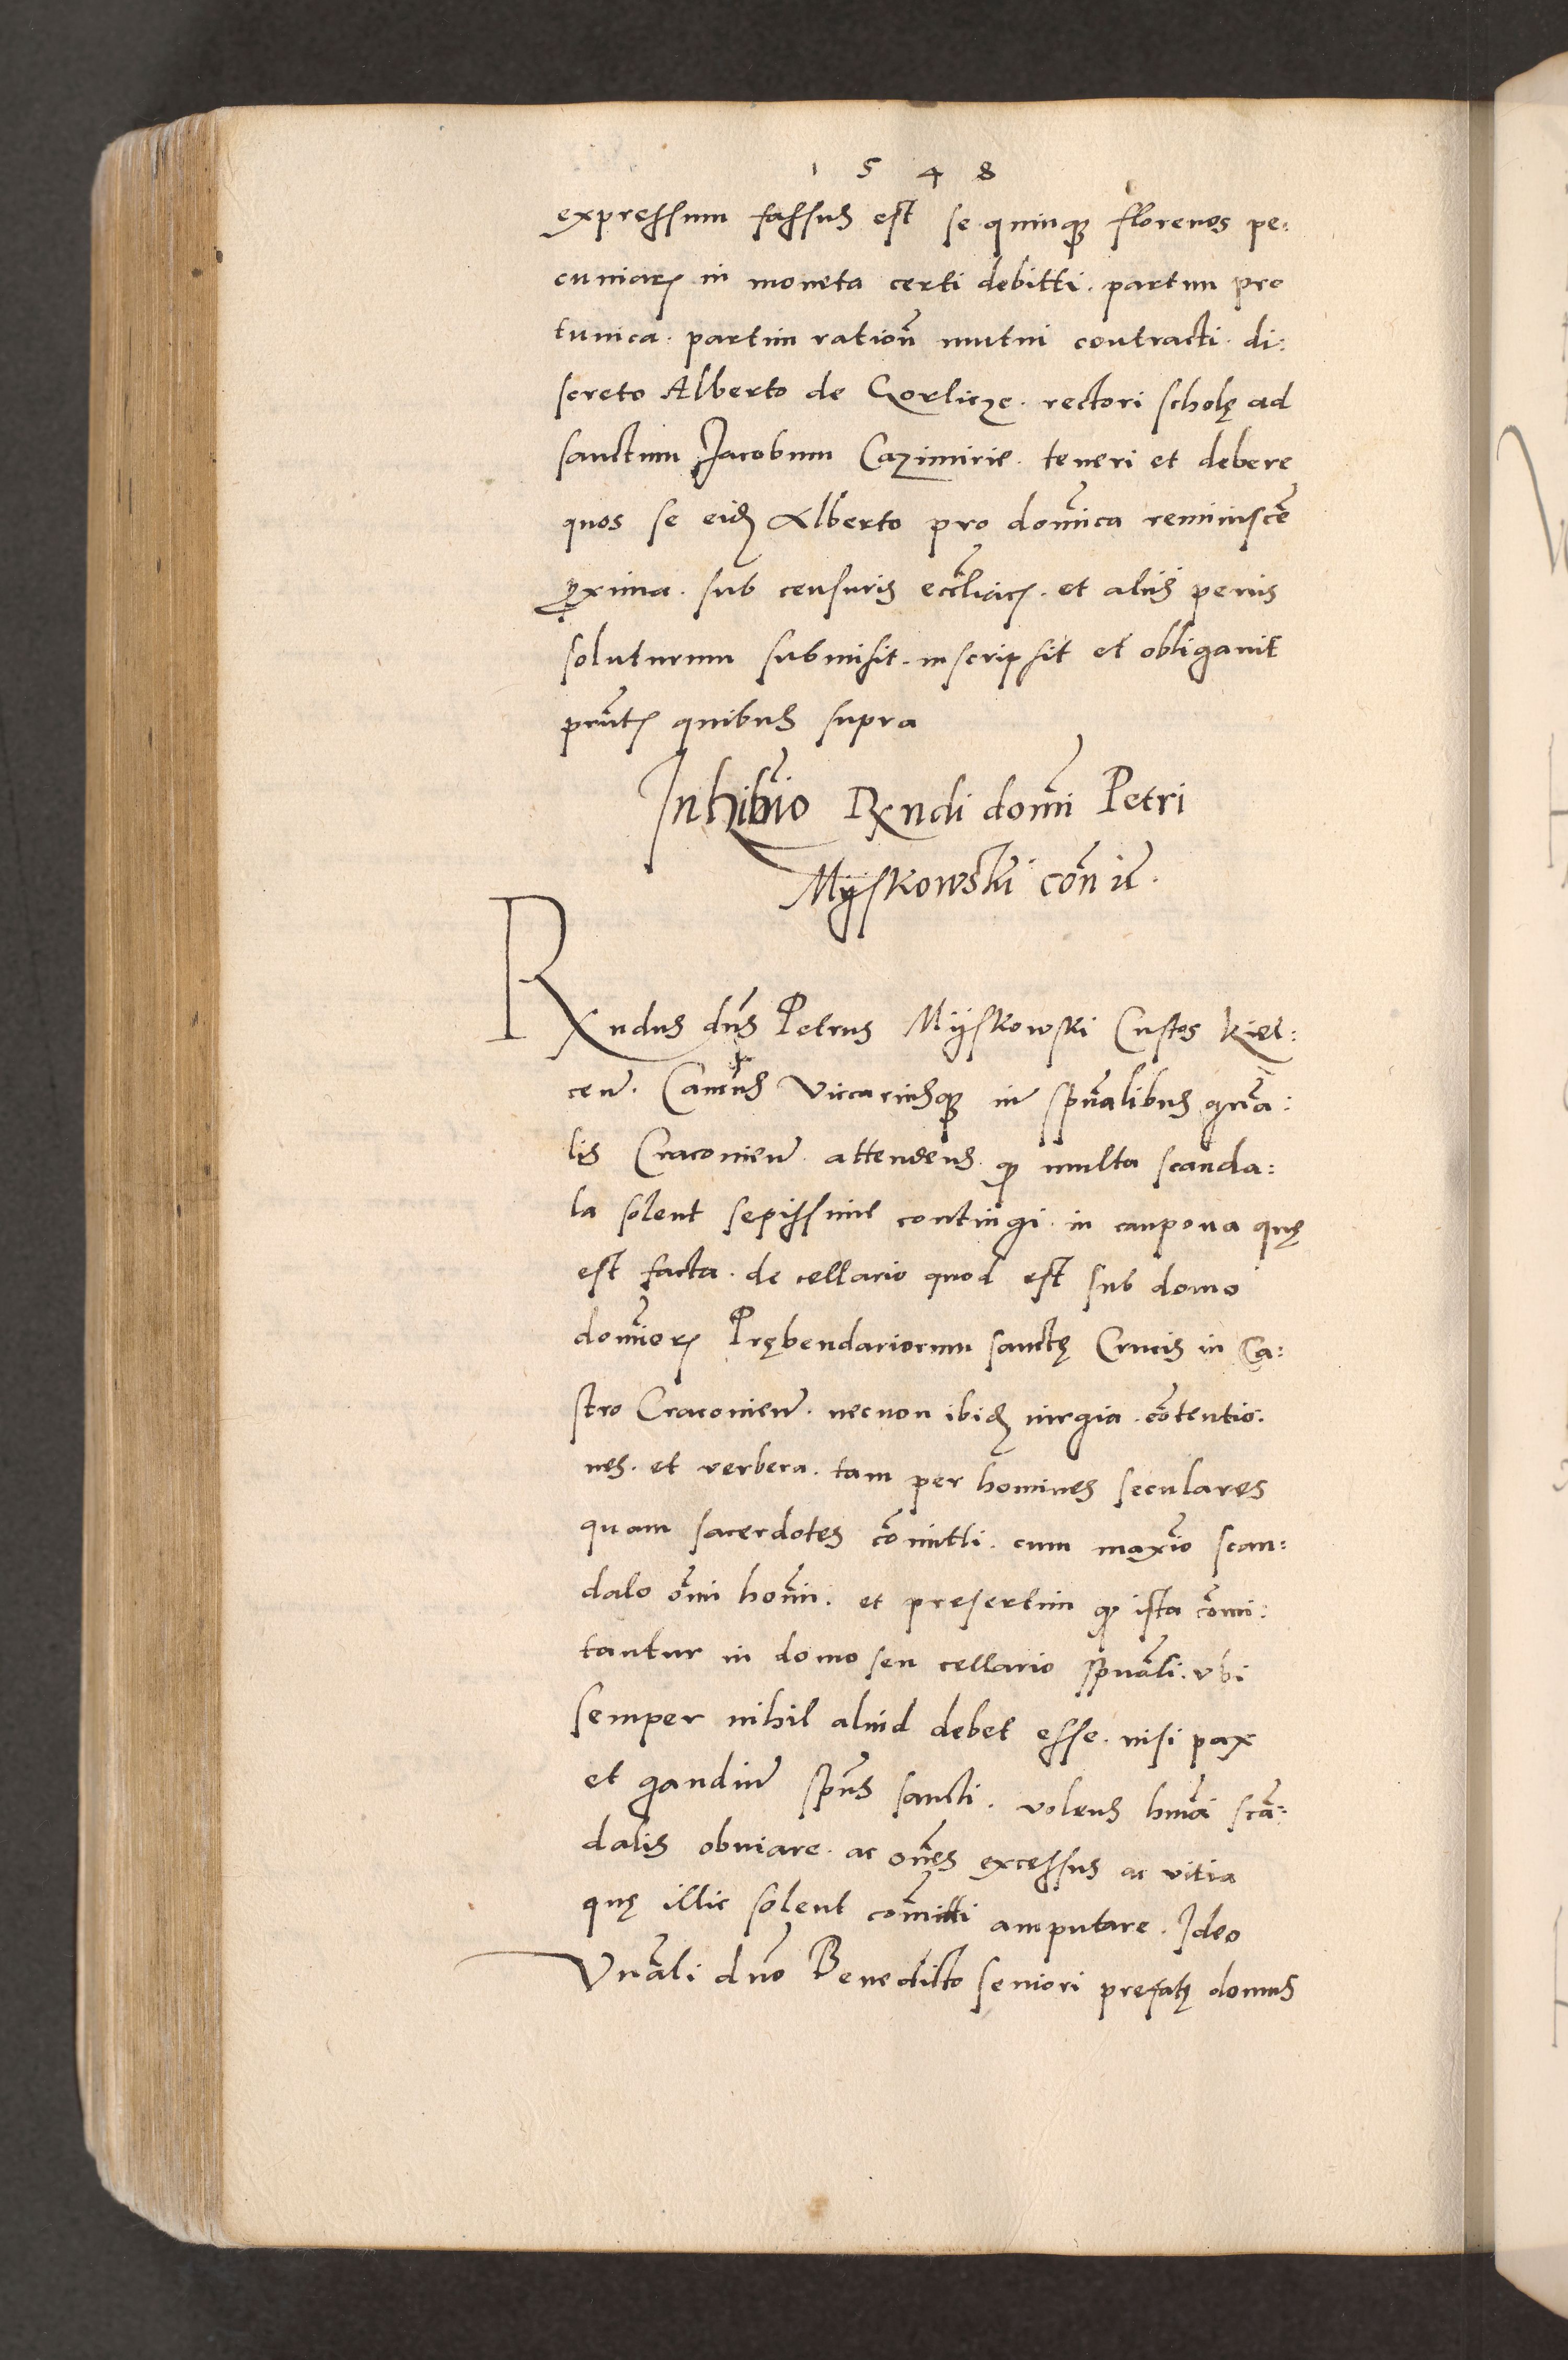 1 5 4 8
expressum fassus est se quinqȝ florenos pe:
cuniarꝫ in moneta certi debitti. partim pro
tunica. partim ration̄ mutui contracti. di:
screto Alberto de Gorlicze. rectori scholę ad
sanctum Jacobum Cazimirie. teneri et debere
quos se eidꝫ Alberto pro domīca reminiscē
ꝓxima. sub censuris eccl̄iacꝫ. et aliis penis
soluturum submisit. inscripsit et obligauit
prn̄tꝫ quibus supra
Inhibīo Rxndi domī Petri
Myskowski cōn iē.
Rxndus dn̄s Petrus Myskowski Custos kiel:
cen̄. Cancūs Viccariusqȝ in spūalibus gnā:
lis Cracouien̄. attendens. qȝ multa scanda:
la solent sepissime contingi. in caupona quę
est facta. de cellario quod est sub domo
domīorꝫ Prębendariorum sanctę Crucis in Ca:
stro Cracouien̄. necnon ibidꝫ iurgia. cōtentio:
nes. et verbera. tam per homines seculares
quam sacerdotes cōmitti. cum maxīo scan:
dalo om̄i homī. et presertim qȝ ista cōmi:
tantur in domo seu cellario spūali. vbi
semper nihil aliud debet esse. nisi pax
et gaudiū spūs sancti. volens hmōi scā:
dalis obuiare. ac om̄es excessus ac vitia
quę illic solent com̄itti amputare. Ideo
Vnāli dn̄o Benedicto seniori prefatę domus